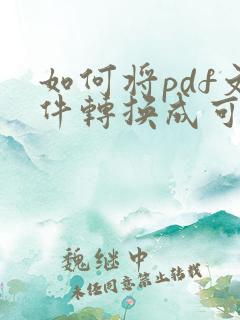 如何将pdf文
件轉换成可
魏继中
未经同意禁止转载